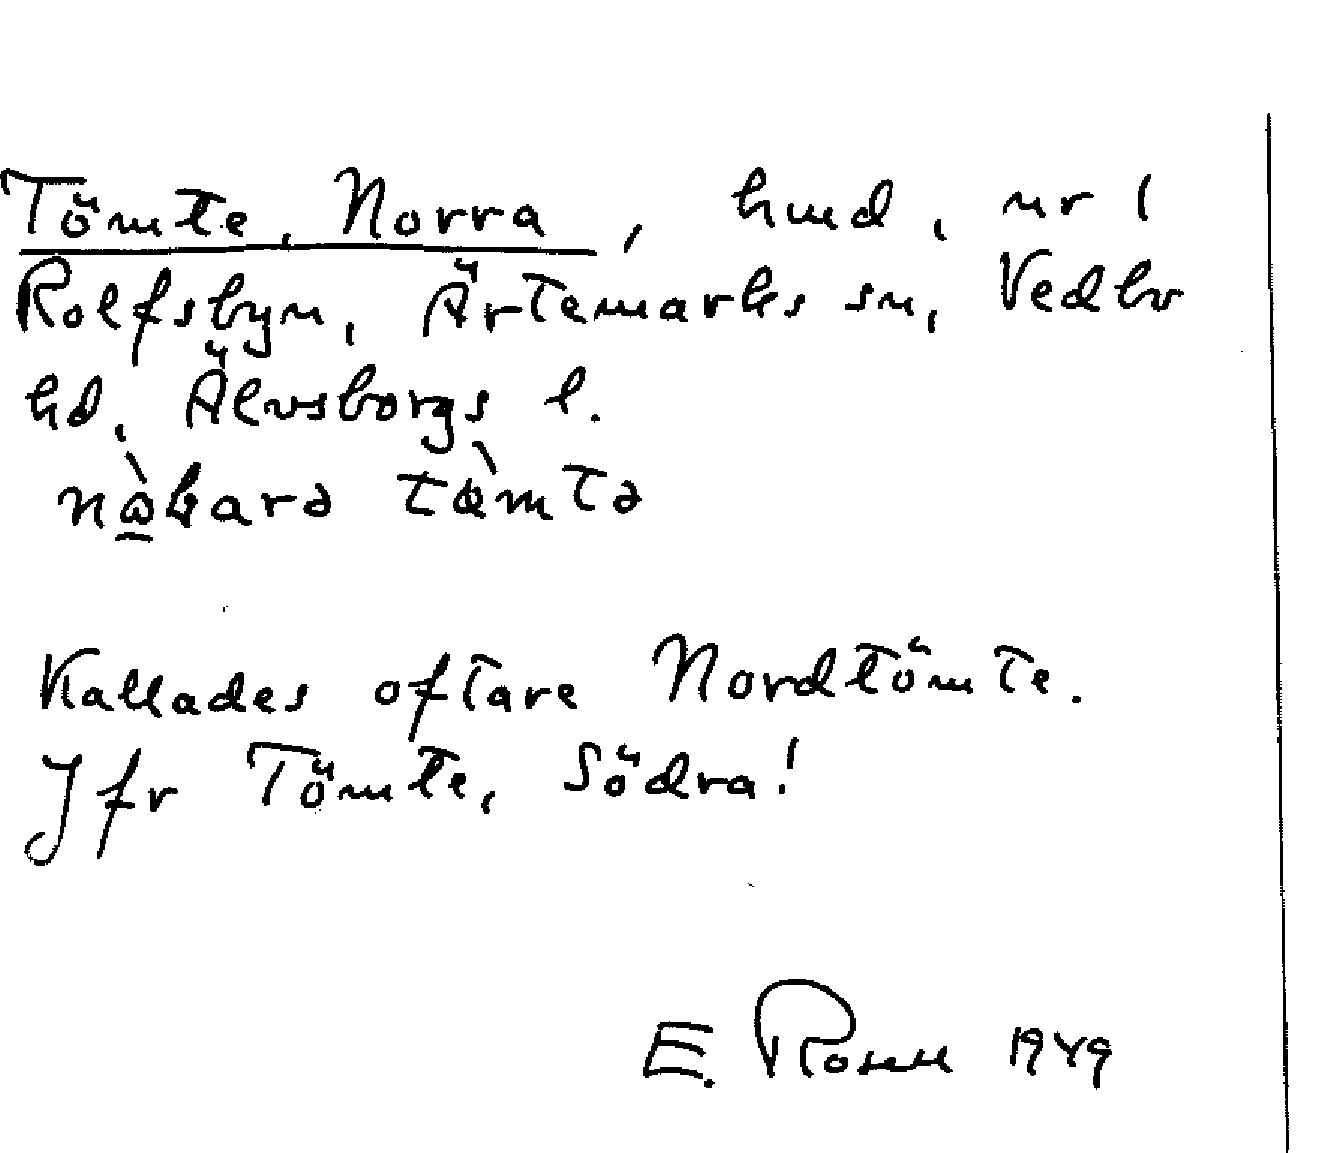 Tömte, Norra, hmd, nr 1
Rolfsbyn, Ärtemarks sn, Vedbo
hd, Älvsborgs l.
Kallades oftare Nordtömte.
Jfr Tömte, Södra!
E. Rosell 1949